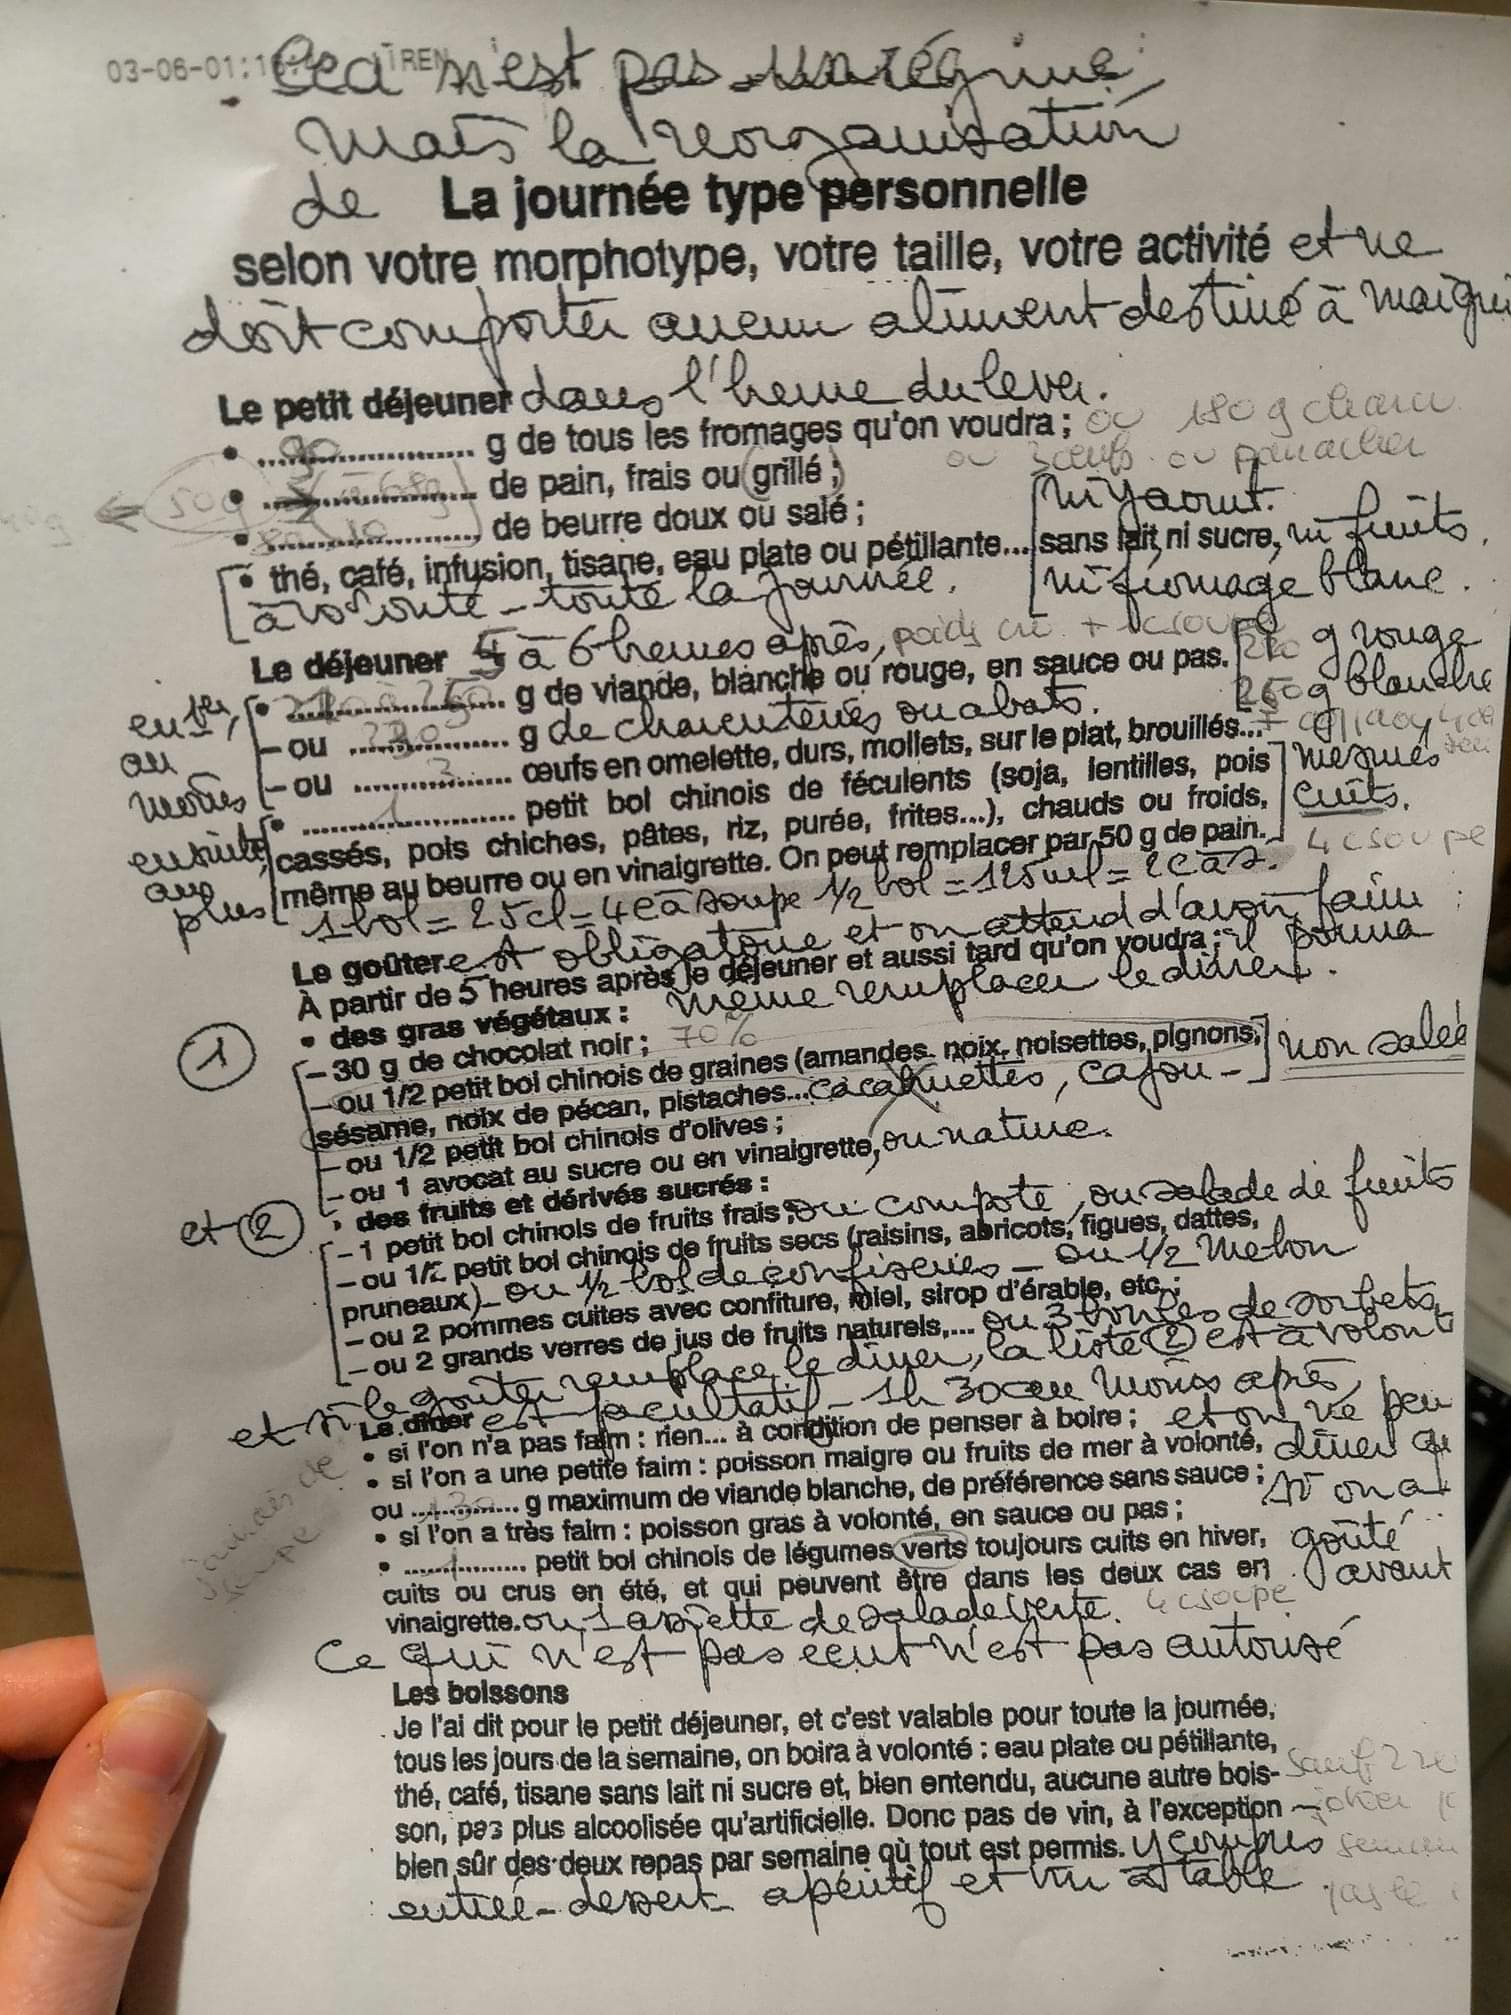 03-06-01:1
Ceci n'est pas un régime,
mais la réorganisation
de La journée type personnelle
selon votre morphotype, votre taille, votre activité et ne
doit comporter aucun aliment destiné à maigri
Le petit déjeuner dans l'heure du lever.
• 90 g de tous les fromages qu'on voudra ; ou 180 g
ou 3 œufs ou panacher
• 50g de pain, frais ou grillé ;
ni yaourt.
• 10 de beurre doux ou salé ;
• thé, café, infusion, tisane, eau plate ou pétillante... sans lait ni sucre, ni fruits,
à volonté - toute la journée. ni fromage blanc.
Le déjeuner 5 à 6 heures après, poids cru + g rouge
en 1er, au moins
• g de viande, blanche ou rouge, en sauce ou pas. 250 g blanche
- ou g de charcuteries ou abats.
- ou 3 œufs en omelette, durs, mollets, sur le plat, brouillés...
ensuite, au plus
• 1 petit bol chinois de féculents (soja, lentilles, pois mesurés
cassés, pois chiches, pâtes, riz, purée, frites...), chauds ou froids, cuits.
même au beurre ou en vinaigrette. On peut remplacer par 50 g de pain. 4 c soupe
1 bol = 25cl = 4 c à soupe 1/2 bol = 125 ml = 2 c à s.
Le goûter est obligatoire et on attend d'avoir faim :
À partir de 5 heures après le déjeuner et aussi tard qu'on voudra ; il pourra
même remplacer le dîner.
1
• des gras végétaux :
– 30 g de chocolat noir ; 70%
– ou 1/2 petit bol chinois de graines (amandes, noix, noisettes, pignons, non salé
sésame, noix de pécan, pistaches... cacahuettes, cajou -
– ou 1/2 petit bol chinois d'olives ;
– ou 1 avocat au sucre ou en vinaigrette, ou nature.
et 2
• des fruits et dérivés sucrés :
– 1 petit bol chinois de fruits frais, ou compote, ou salade de fruits
– ou 1/2 petit bol chinois de fruits secs (raisins, abricots, figues, dattes,
pruneaux) - ou 1/2 bol de confiseries - ou 1/2 melon
– ou 2 pommes cuites avec confiture, miel, sirop d'érable, etc. ;
– ou 2 grands verres de jus de fruits naturels,... ou 3 boules de sorbets,
et si le goûter remplace le dîner, la liste 2 est à volonté
Le dîner est facultatif - 1h30 au moins après,
• si l'on n'a pas faim : rien... à condition de penser à boire ; et on ne peu
• si l'on a une petite faim : poisson maigre ou fruits de mer à volonté, dîner que
ou 130 g maximum de viande blanche, de préférence sans sauce ; si on a
• si l'on a très faim : poisson gras à volonté, en sauce ou pas ;
jamais de soupe
• 1 petit bol chinois de légumes verts toujours cuits en hiver, goûté
cuits ou crus en été, et qui peuvent être dans les deux cas en avant
vinaigrette. ou 1 assiette de salade verte. 4 c soupe
Ce qui n'est pas écrit n'est pas autorisé
Les boissons
Je l'ai dit pour le petit déjeuner, et c'est valable pour toute la journée,
tous les jours de la semaine, on boira à volonté : eau plate ou pétillante,
thé, café, tisane sans lait ni sucre et, bien entendu, aucune autre bois- sauf 2
son, pas plus alcoolisée qu'artificielle. Donc pas de vin, à l'exception joker
bien sûr des deux repas par semaine où tout est permis. y compris
entrée - dessert apéritif et vin à table